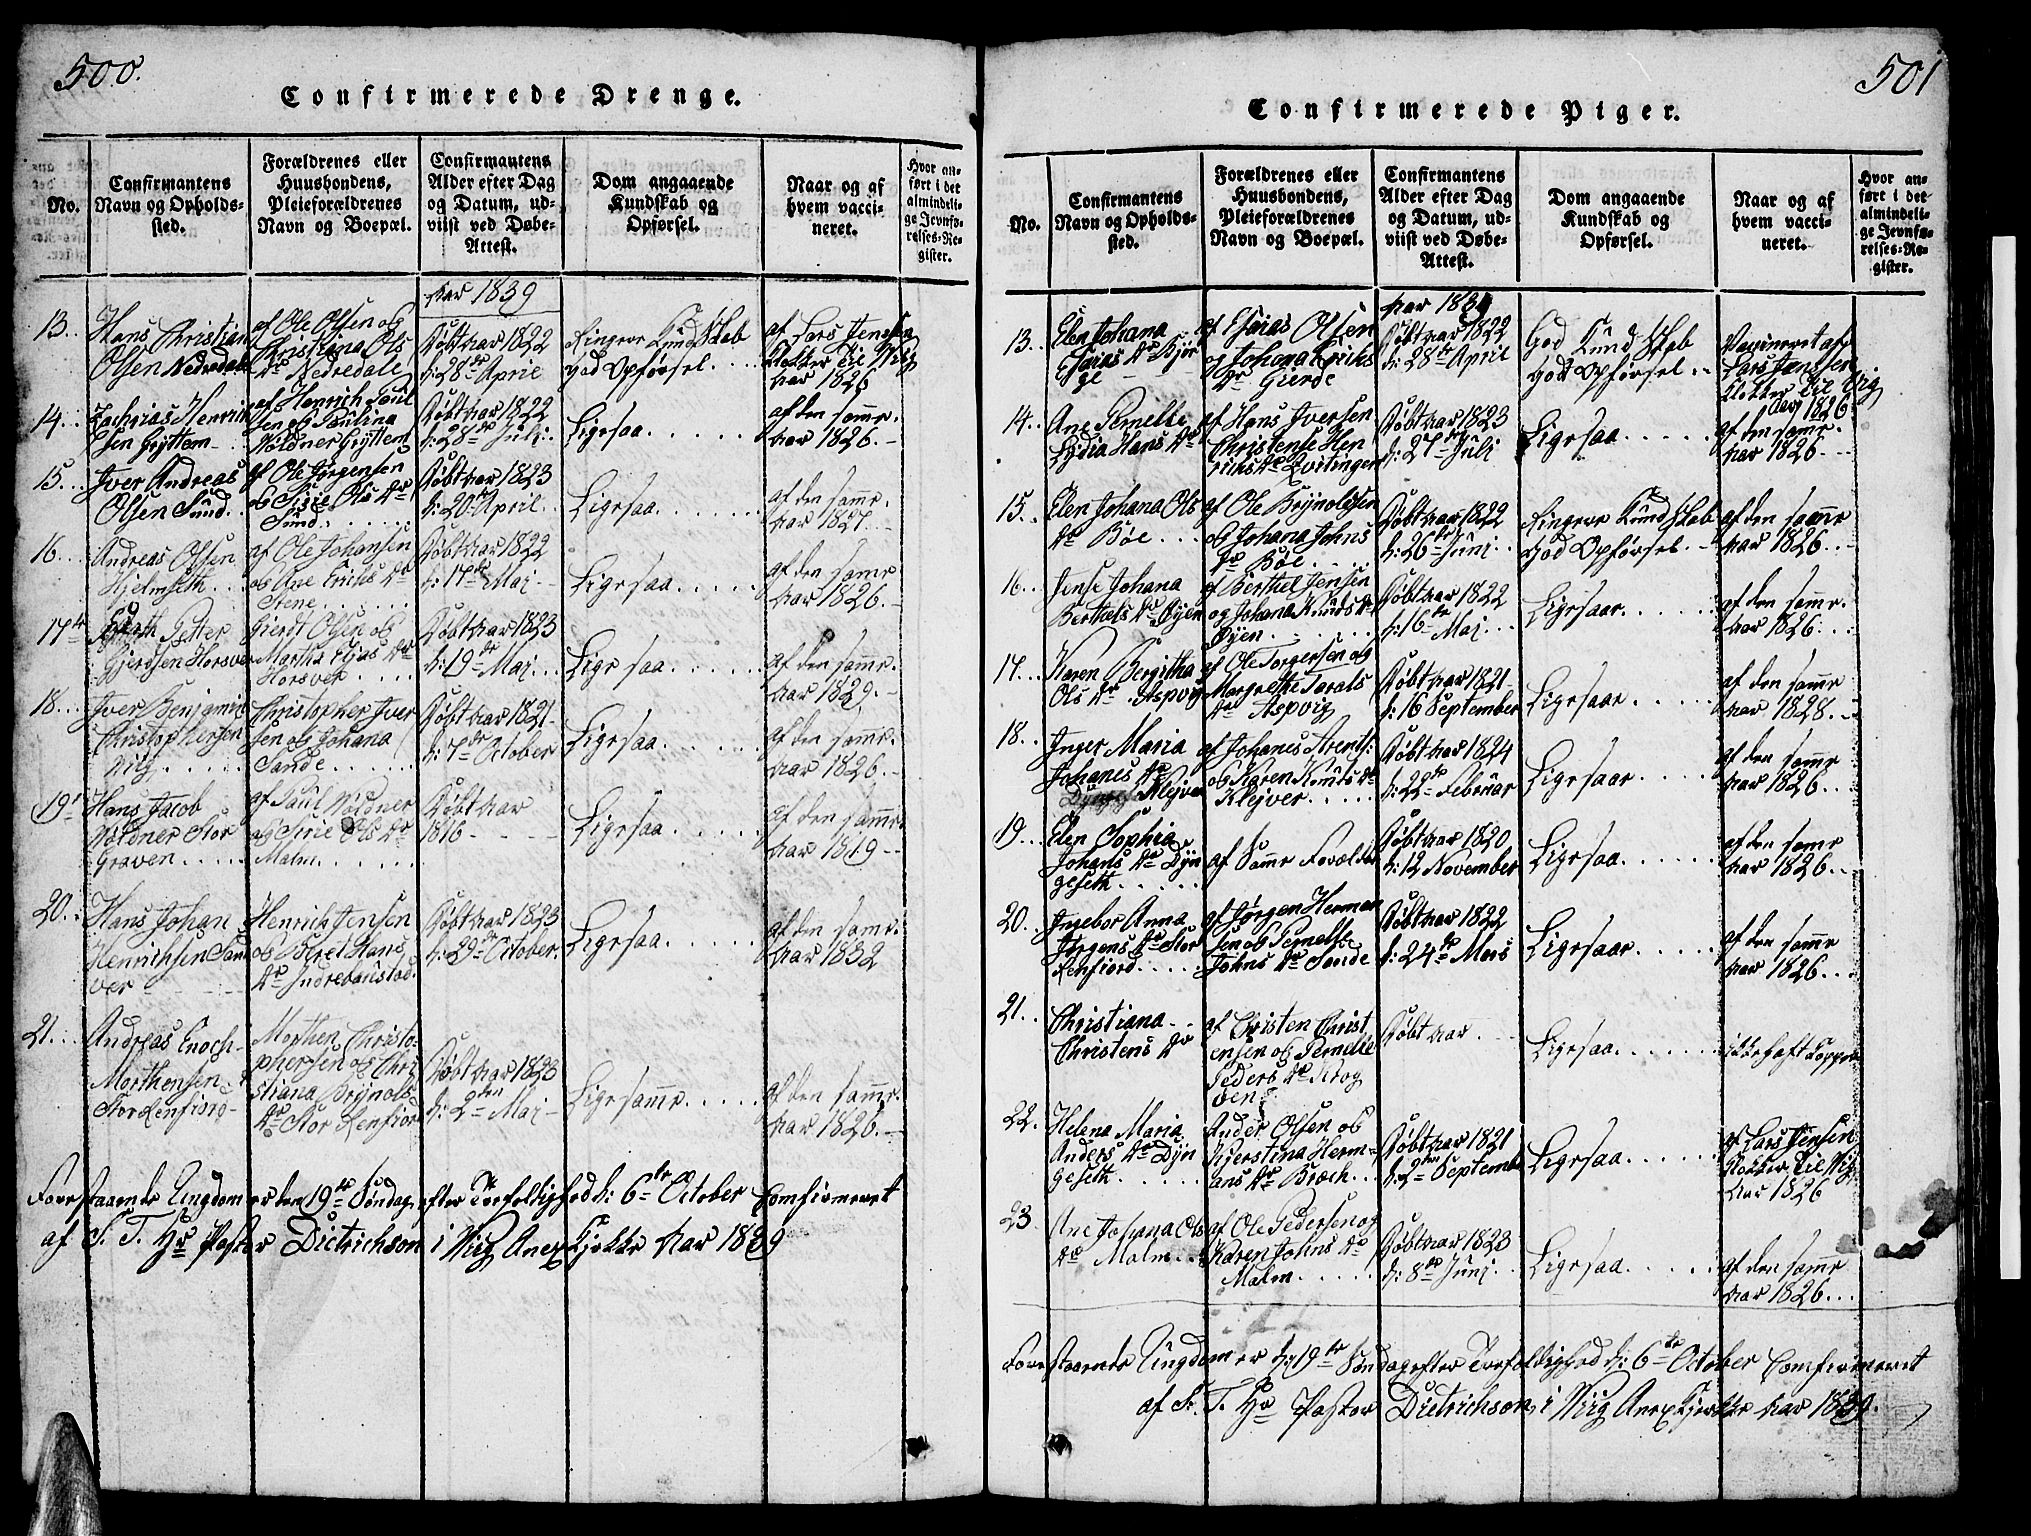 500.
Confirmerede Drenge.
No.
Confirmantens
Navn og Opholds-
sted.
Forældrenes eller
Huusbondens,
Pleieforældrenes
Navn og Boepæl.
Confirmantens
Alder efter Dag
og Datum, ud-
viist ved Døbe-
Attest.
Dom angaaende
Kundskab og
Opførsel.
Naar og af
hvem vacci-
neret.
Hvor an-
ført i det
almindeli-
ge Jevnfø-
relses-Re-
gister.
Aar 1839
13..
Hans Christian
Olsen Nedredale
af Ole Olsen og
Christiana Ols
Dr Nedredale
Døbt Aar 1822
d: 28de April
Ringere Kundskab
god Opførsel....
af Lars Jensen
Klokker til Viig
Aar 1826
14..
Zacharias Henrik
sen Gyttem
af Henrich Paul
sen og Paulina
Vøldner Gyttem
Døbt Aar 1822
d: 28de Juli
Ligesaa......
af den samme
Aar 1826.-
15...
Iver Andreas
Olsen Sund..
af Ole Jørgensen
og Siri Ols Dr
Sund......
Døbt Aar 1823
d: 20de April..
Ligesaa.....
af den samme
Aar 1827.-
16...
Andreas Olsen
Hjelmseth...
af Ole Johansen
og Ane Erichs Dr
Stene.....
Døbt Aar 1822
d: 17de Mai..
Ligesaa......
af den samme
Aar 1826.-
17
Petter
Gjerdsen Horsver
Gierdt Olsen og
Martha Elias Dr
Horsver....
Døbt Aar 1823
d: 19de Mai...
Ligesaa......
af den samme
Aar 1829.-
18...
Iver Benjamin
Christophersen
Viig......
Christopher Iver
sen og Johana
Sande......
Døbt Aar 1821
d: 7de October
Ligesaa......
af den samme
Aar 1826.-
19
Hans Jacob
Vøldner Stor
Graven.....
af Paul Vøldner
og Sirie Ols Dr
Malm......
Døbt Aar
1816
Ligesaa......
af den samme
Aar 1819--
20..
Hans Johan
Henrichsen San
ver
Henrich Jensen
og Beret Hans
Dr Indrevanistad
Døbt Aar 1823
d: 29de October.
Ligesaa......
af den samme
Aar 1832
21..
Andreas Enoch
Morthensen
Stor Lenfiord-
Morthen Christo
phersen og Chri
stiana Brynols
Dr Stor Lenfiord
Døbt Aar 1823
d: 2den Mai-
Ligesamme.....
af den samme
Aar 1826.-
Forestaaende Ungdom er den 19de Søndag efter Trefoldighed d: 6te October Comfirmeret
af S. T. Hr Pastor Dietrichson i Viig Anex Kjerkke Aar 1839
501
Confirmerede Piger.
No.
Confirmantens
Navn og Opholds-
sted.
Forældrenes eller
Huusbondens,
Pleieforældrenes
Navn og Boepæl.
Confirmantens
Alder efter Dag
og Datum, ud-
viist ved Døbe-
Attest.
Dom angaaende
Kundskab og
Opførsel.
Naar og af
hvem vacci-
neret.
Hvor an-
ført i det
almindeli-
ge Jevnfø-
relses-Re-
gister.
Aar 1839
13..
Elen Johana
Esaias Dr Bjør
ge
af Esaias Olsen
og Johana Erichs
Dr Gierde
Døbt Aar 1822
d: 28de April
God Kundskab
god Opførsel..
Vaccineret af
Lars Jenssen
Klokker til Viig
Aar 1826
14..
Ane Pernelle
Lydia Hans Dr
af Hans Iversen
Christense Hen
richs Dr Qvitingen
Døbt Aar 1823
d: 27de Juli
Ligesaa.....
af den samme
Aar 1826.--
15...
Elen Johana Ols
Dr Bøe...
af Ole Brynolvsen
og Johana Johns
Dr Bøe....
Døbt Aar 1822
d: 26de Juni..
Ringere Kundskab
god Opførsel..
af den samme
Aar 1826..-
16..
Jense Johana
Berthels Dr Øyen
af Berthel Jensen
og Johana Knuds Dr
Øyen.......
Døbt Aar 1822
d: 16de Mai...
Ligesaa......
af den samme
Aar 1826...
17..
Karen Bergitha
Ols Dr Aspvig
af Ole Torgersen og
Margrethe Tarals
Dr Aspvig
Døbt Aar 1821
d: 16 September
Ligesaa......
af den samme
Aar 1828..-
18..
Inger Maria
Johanes Dr
Klejver
af Johanes Arents:
og Karen Knuds Dr
Klejver.....
Døbt Aar 1824
d: 22de Februar
Ligesaa......
af den samme
Aar 1826...
19...
Elen Sophia
Johans Dr Dyn
geseth.....
af Samme Forældre
Døbt Aar 1820
d: 12 November
Ligesaa......
af den samme
Aar 1826...
20.
Ingebor Anna
Jørgens Dr Stor
Lenfiord.....
af Jørgen Herman
sen og Pernelle
Johns Dr Sande
Døbt Aar 1822
d: 24de Mars
Ligesaa......
af den samme
Aar 1826...
21..
Christiana..
Christens Dr
af Cristen Christ
ensen og Pernelle
Peders Dr Krog
ven
Døbt Aar....
Ligesaa......
ikke haft Kopper
22.
Helena Maria
Anders Dr Dyn
geseth.....
Ander Olsen og
Kjerstina Herm-
ans Dr Broch..
Døbt Aar 1821
d: 2den Septemb
Ligesaa......
af Lars Jensen
Klokker til Viig
Aar 1826
23
Ane Johana Ols
Dr Malm...
af Ole Pedersen og
Karen Johns Dr
Malm......
Døbt Aar 1823
d: 8de Juni..
Ligesaa......
af den samme
Aar 1826...
Forestaaende Ungdom er d: 19de Søndag efter Trefoldighed d: 6te October Comfirmeret
af S. T. Hr Pastor Dietrichson i Viig Anex Kjerkke Aar 1839.